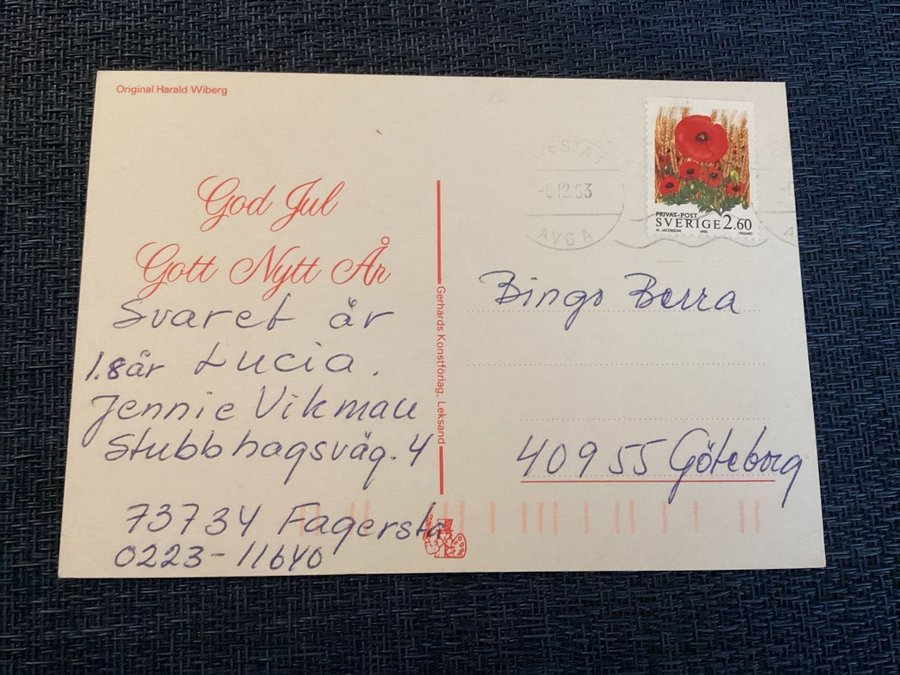 Original Harald Wiberg
God Jul
Gott Nytt År
Svaret är
1.8år Lucia.
Jennie Vikman
Stubbhagsväg. 4
73734 Fagersta
0223-11640
Gerhards Konstförlag, Leksand
-8.12.93
AVGA
PRIVAT-POST
SVERIGE 2.60
M. JACOBSON 1993
Bingo Berra
40955 Göteborg